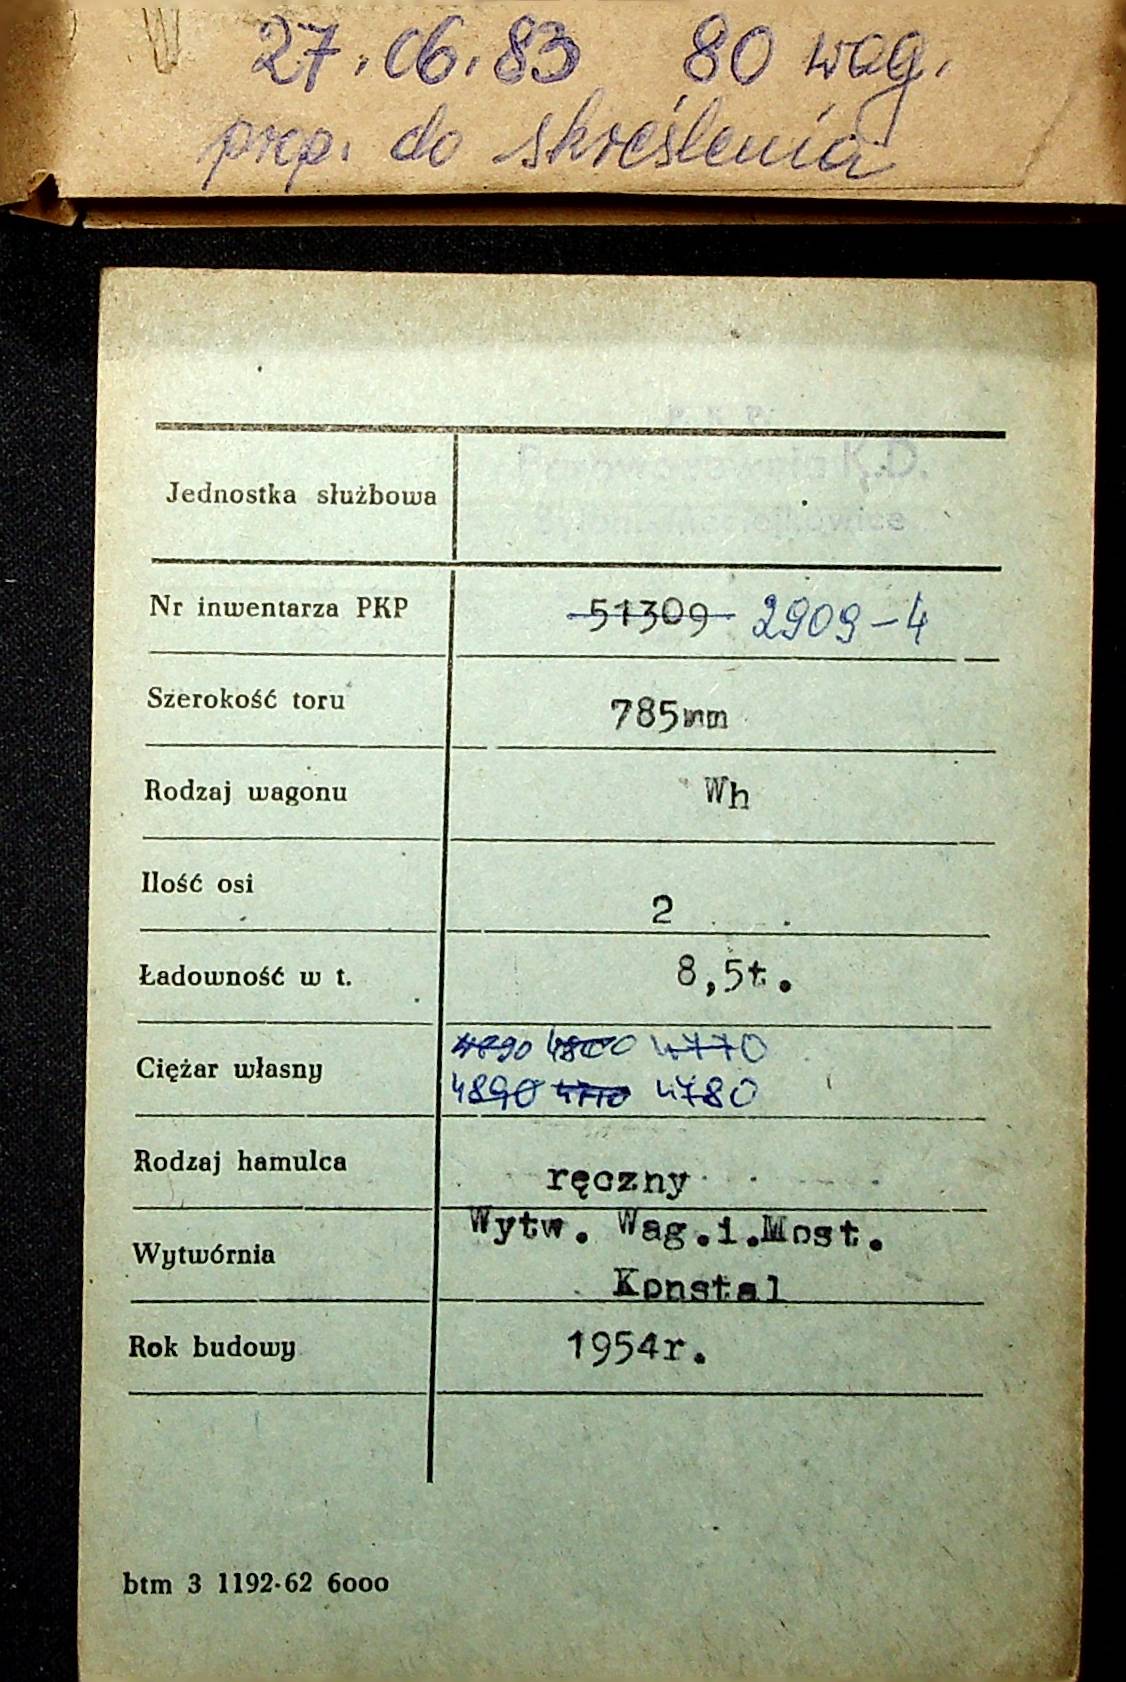 27.06.83 80 wag.
prep. do skreślenia
P. K. P.
Parowozownia K.D.
Bytom-Maciejkowice
Jednostka służbowa
Nr inwentarza PKP 51309 2909-4
Szerokość toru 785mm
Rodzaj wagonu Wh
Ilość osi 2
Ładowność w t. 8,5t.
4890 4800 4770
Ciężar własny
4890 4770 4780
Rodzaj hamulca ręczny
Wytw. Wag.i.Most.
Wytwórnia
Konstal
Rok budowy 1954r.
btm 3 1192-62 6000